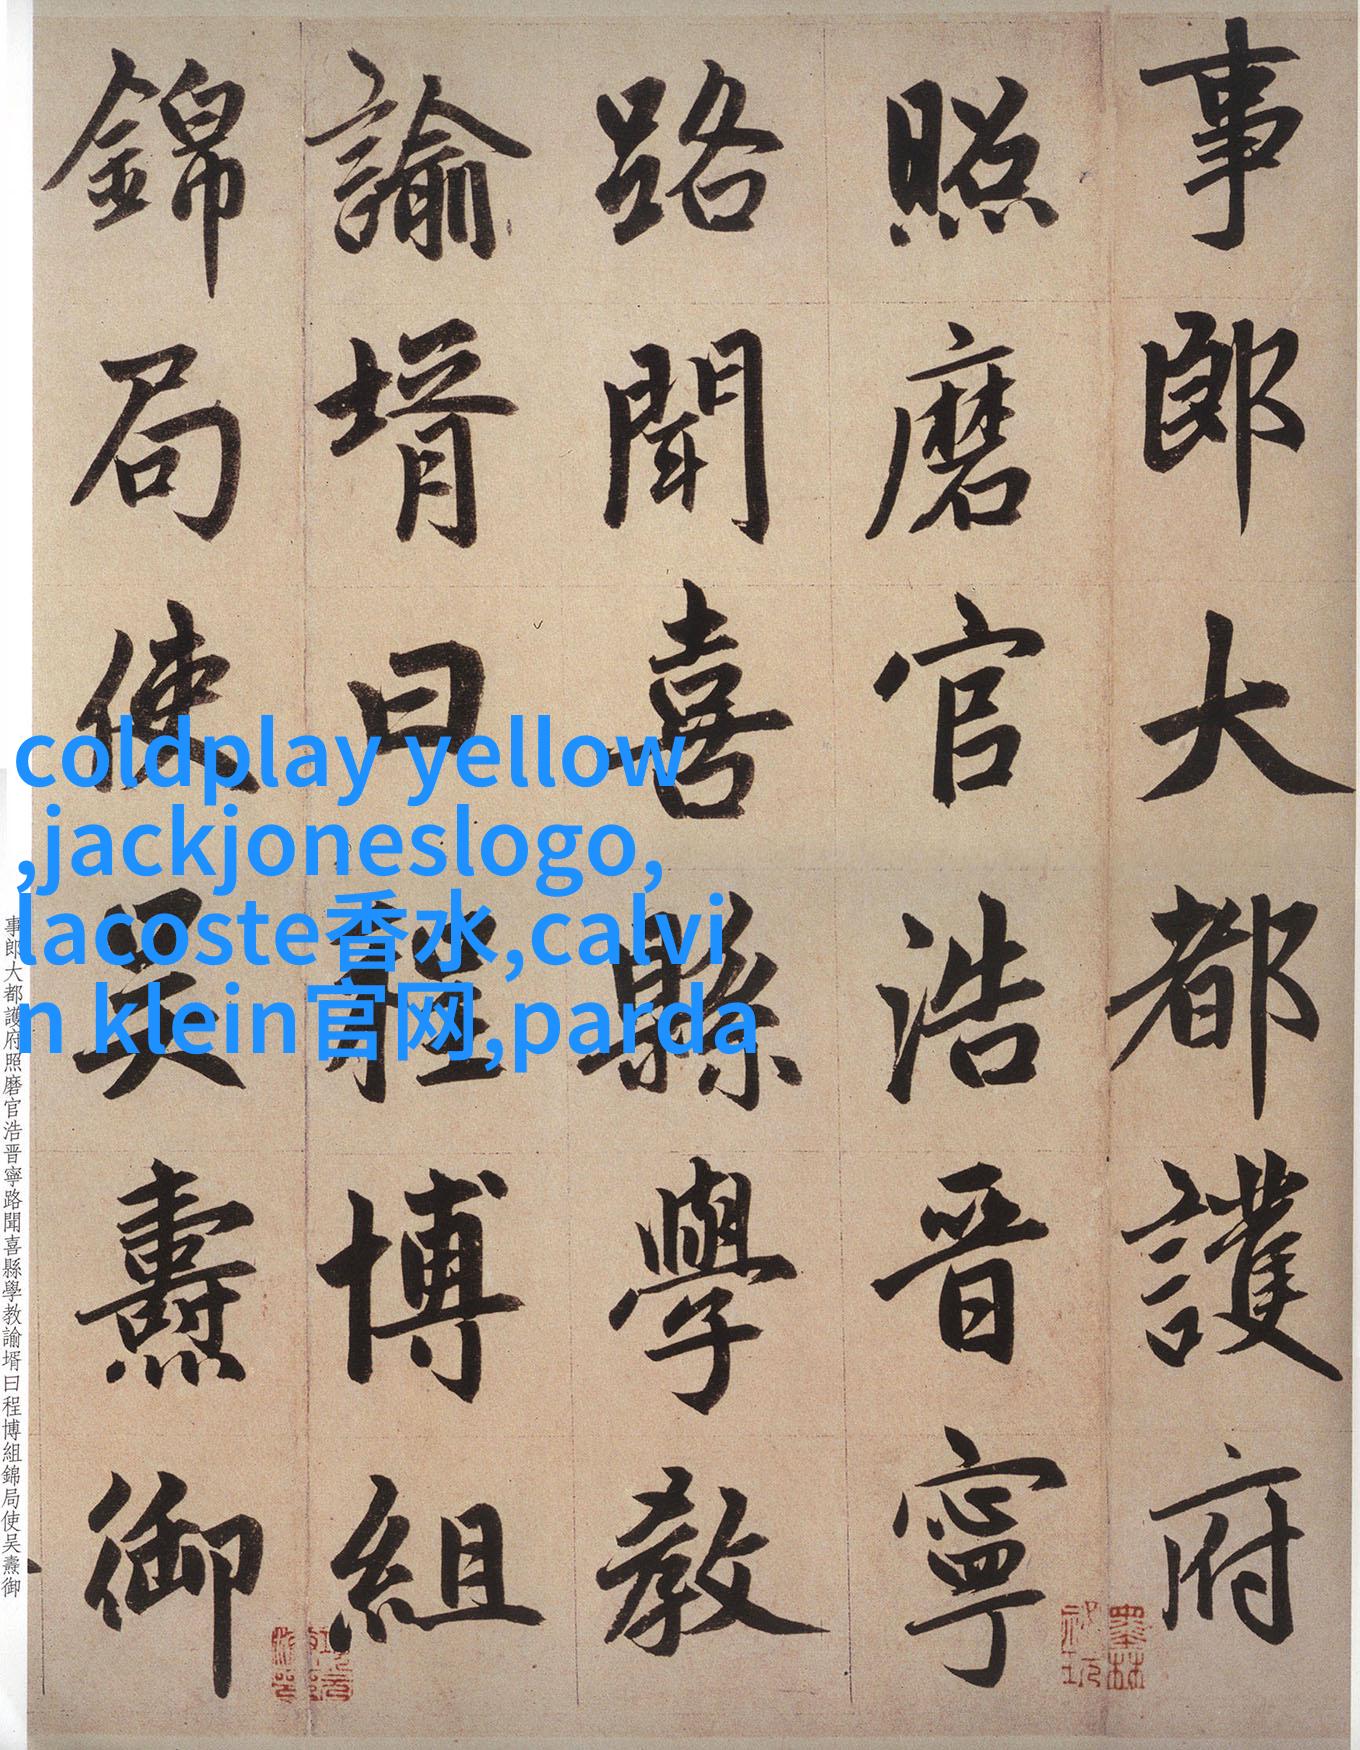 事郎大都護府
照磨官浩晋寧
路聞喜縣學教
諭壻曰程博組
錦局使吴燾御
coldplay yellow
,jackjoneslogo,
lacoste香水,calvi
n klein官网,parda
事郎大都護府照磨官浩晋寧路聞喜縣學教諭壻曰程博組錦局使吴燾御